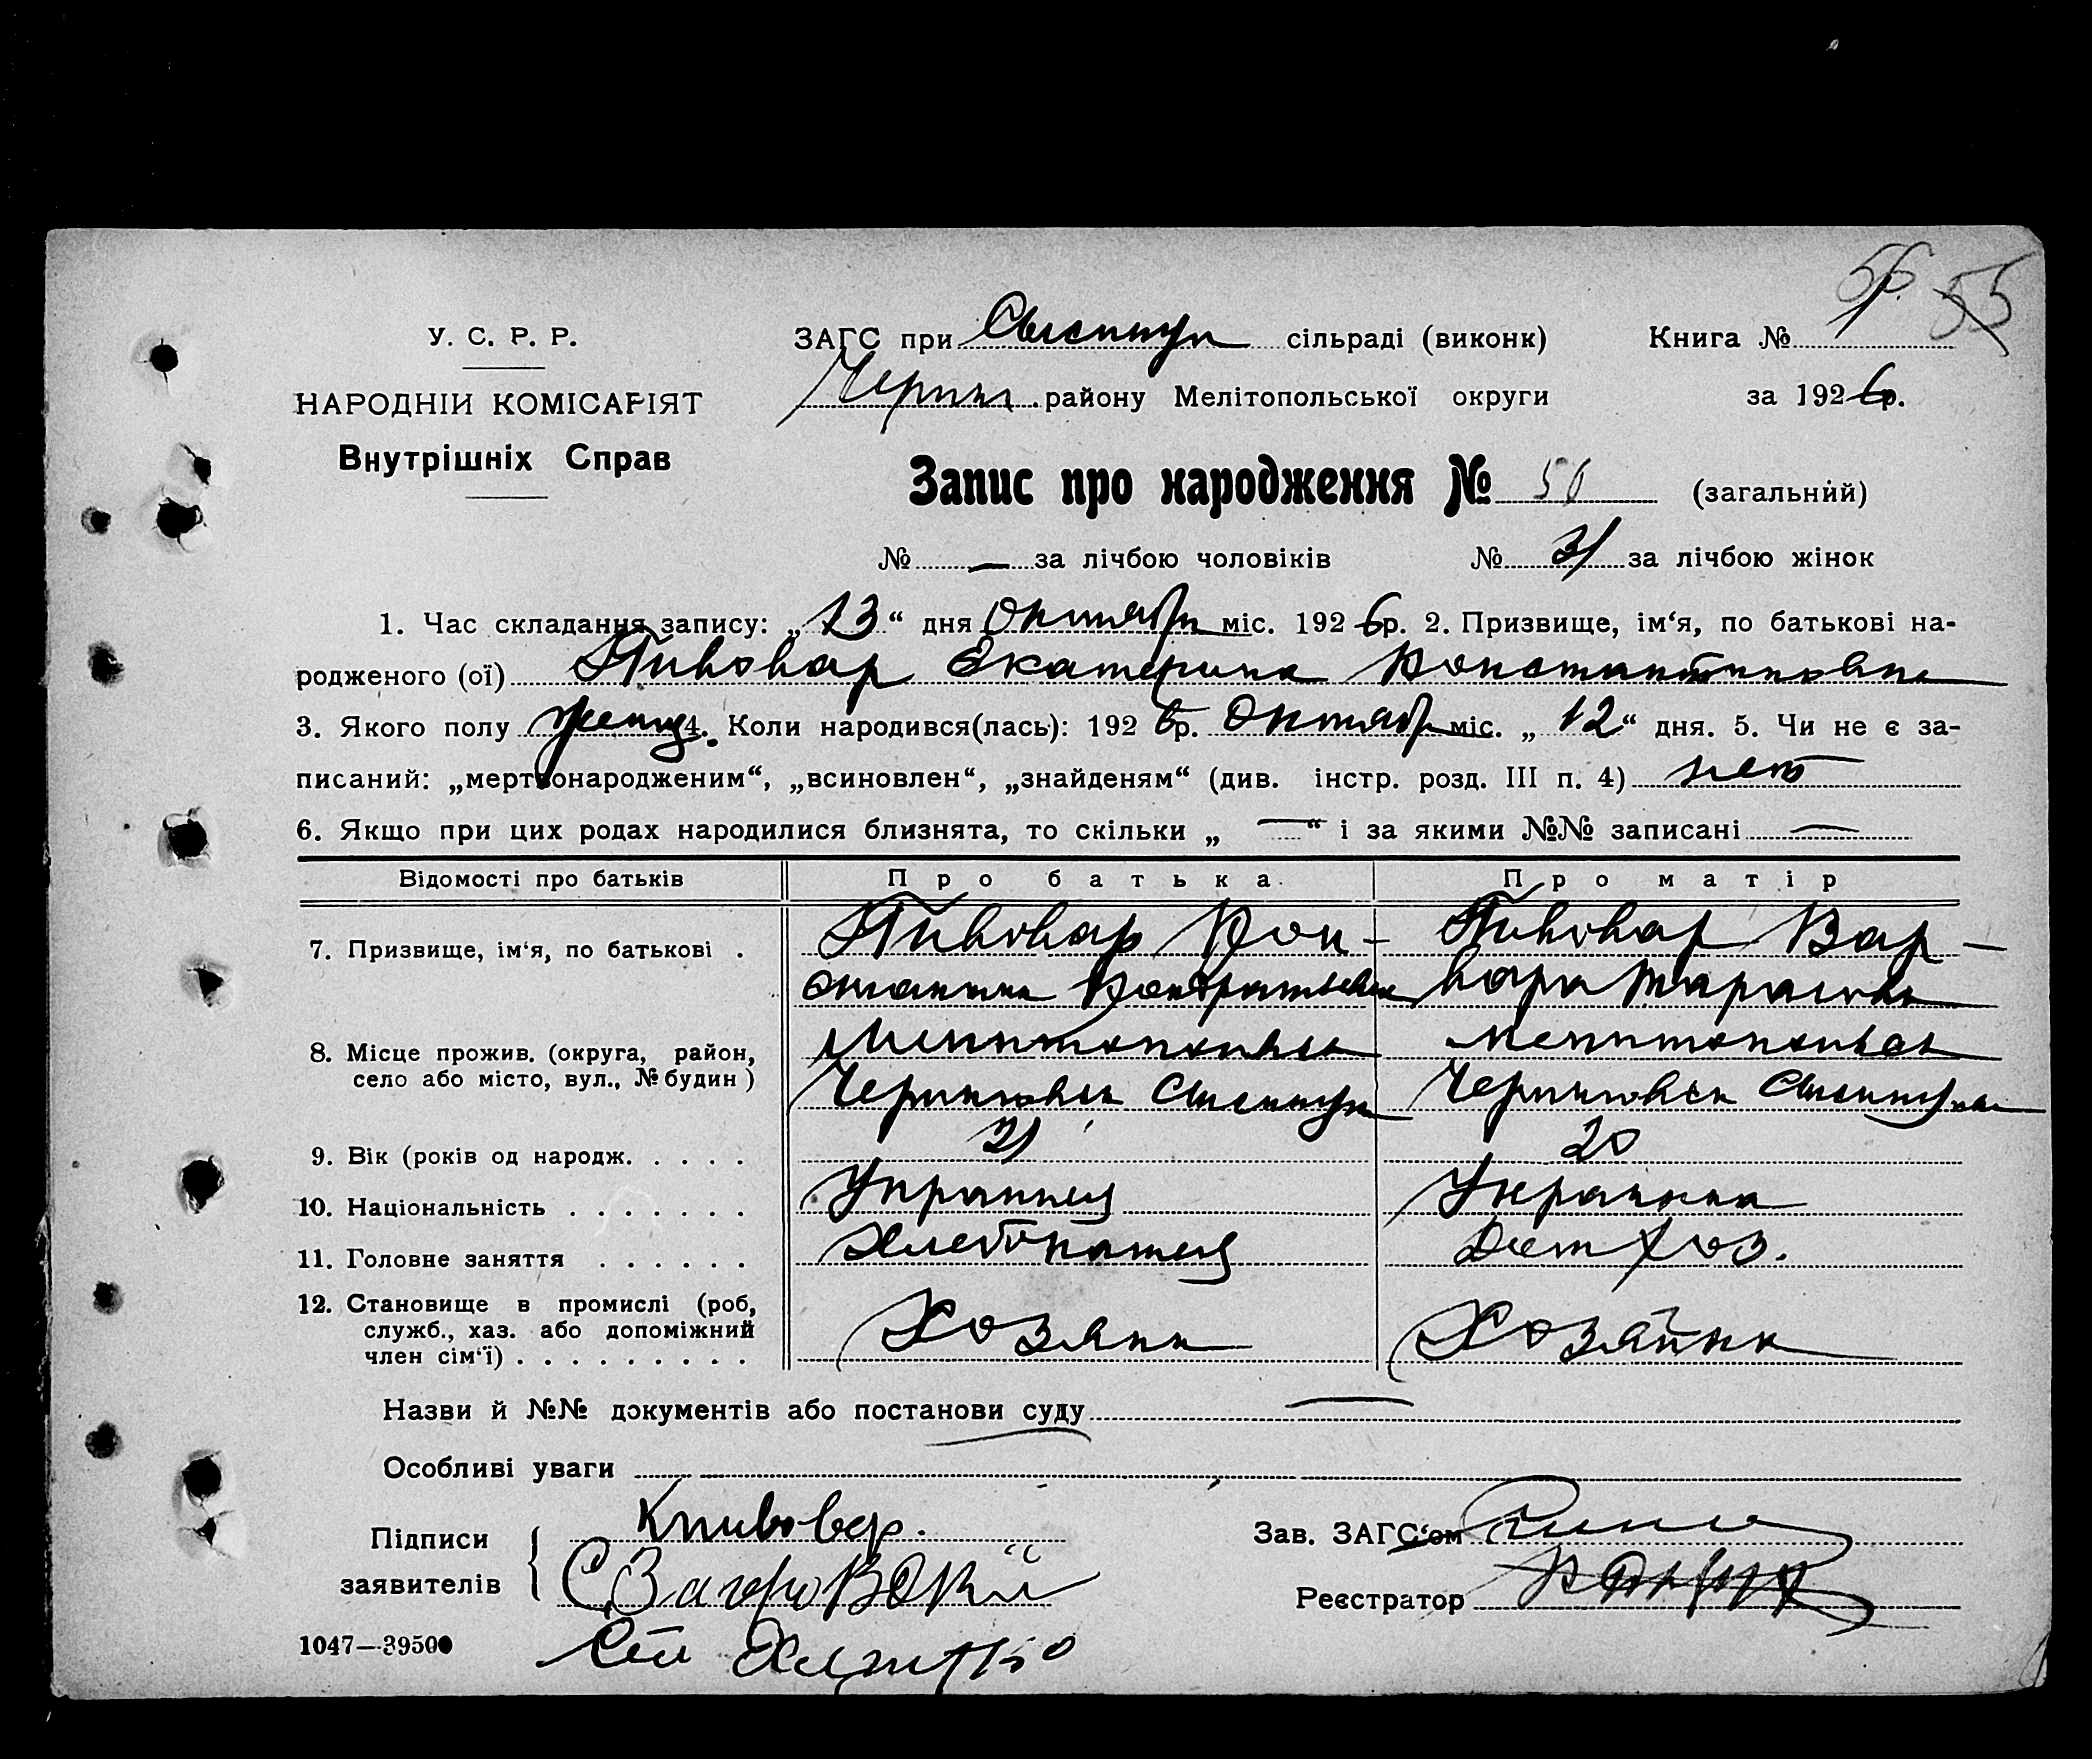 56 55
У. С. Р. Р.
НАРОДНІЙ КОМІСАРІЯТ
Внутрішніх Справ
ЗАГС при сільраді (виконк) Книга №
району Мелітопольської округи за 1926р.
Запис про народження № 50 (загальний)
№ — за лічбою чоловіків № 31 за лічбою жінок
1. Час складання запису: „13“ дня Октября міс. 1926р. 2. Призвище, ім‘я, по батькові на-
родженого (ої) Пивовар Екатерина Константиновна
3. Якого полу женщ 4. Коли народився(лась): 1926р. Октябр міс. „12“ дня. 5. Чи не є за-
писаний: „мертвонародженим“, „всиновлен“, „знайденям“ (див. інстр. розд. III п. 4) нет
6. Якщо при цих родах народилися близнята, то скільки „—“ і за якими №№ записані —
Відомості про батьків Про батька Про матір
7. Призвище, ім‘я, по батькові . Пивовар Кон- Пивовар Вар-
вара Тарасовн
8. Місце прожив. (округа, район,
село або місто, вул., № будин)
Мелитопольск Мелитопольск
Черниговск Черниговск
9. Вік (років од народж. . . . . 21 20
10. Національність . . . . . . . Украинец Украинка
11. Головне заняття . . . . . . Хлебопашец Дом хоз.
12. Становище в промислі (роб,
служб., хаз. або допоміжний
член сім‘ї) . . . . . . . . . Хозяин Хозяйка
Назви й №№ документів або постанови суду —
Особливі уваги
Підписи
заявителів
Кпивовер.
Зав. ЗАГС‘ом
Реєстратор
1047—39500